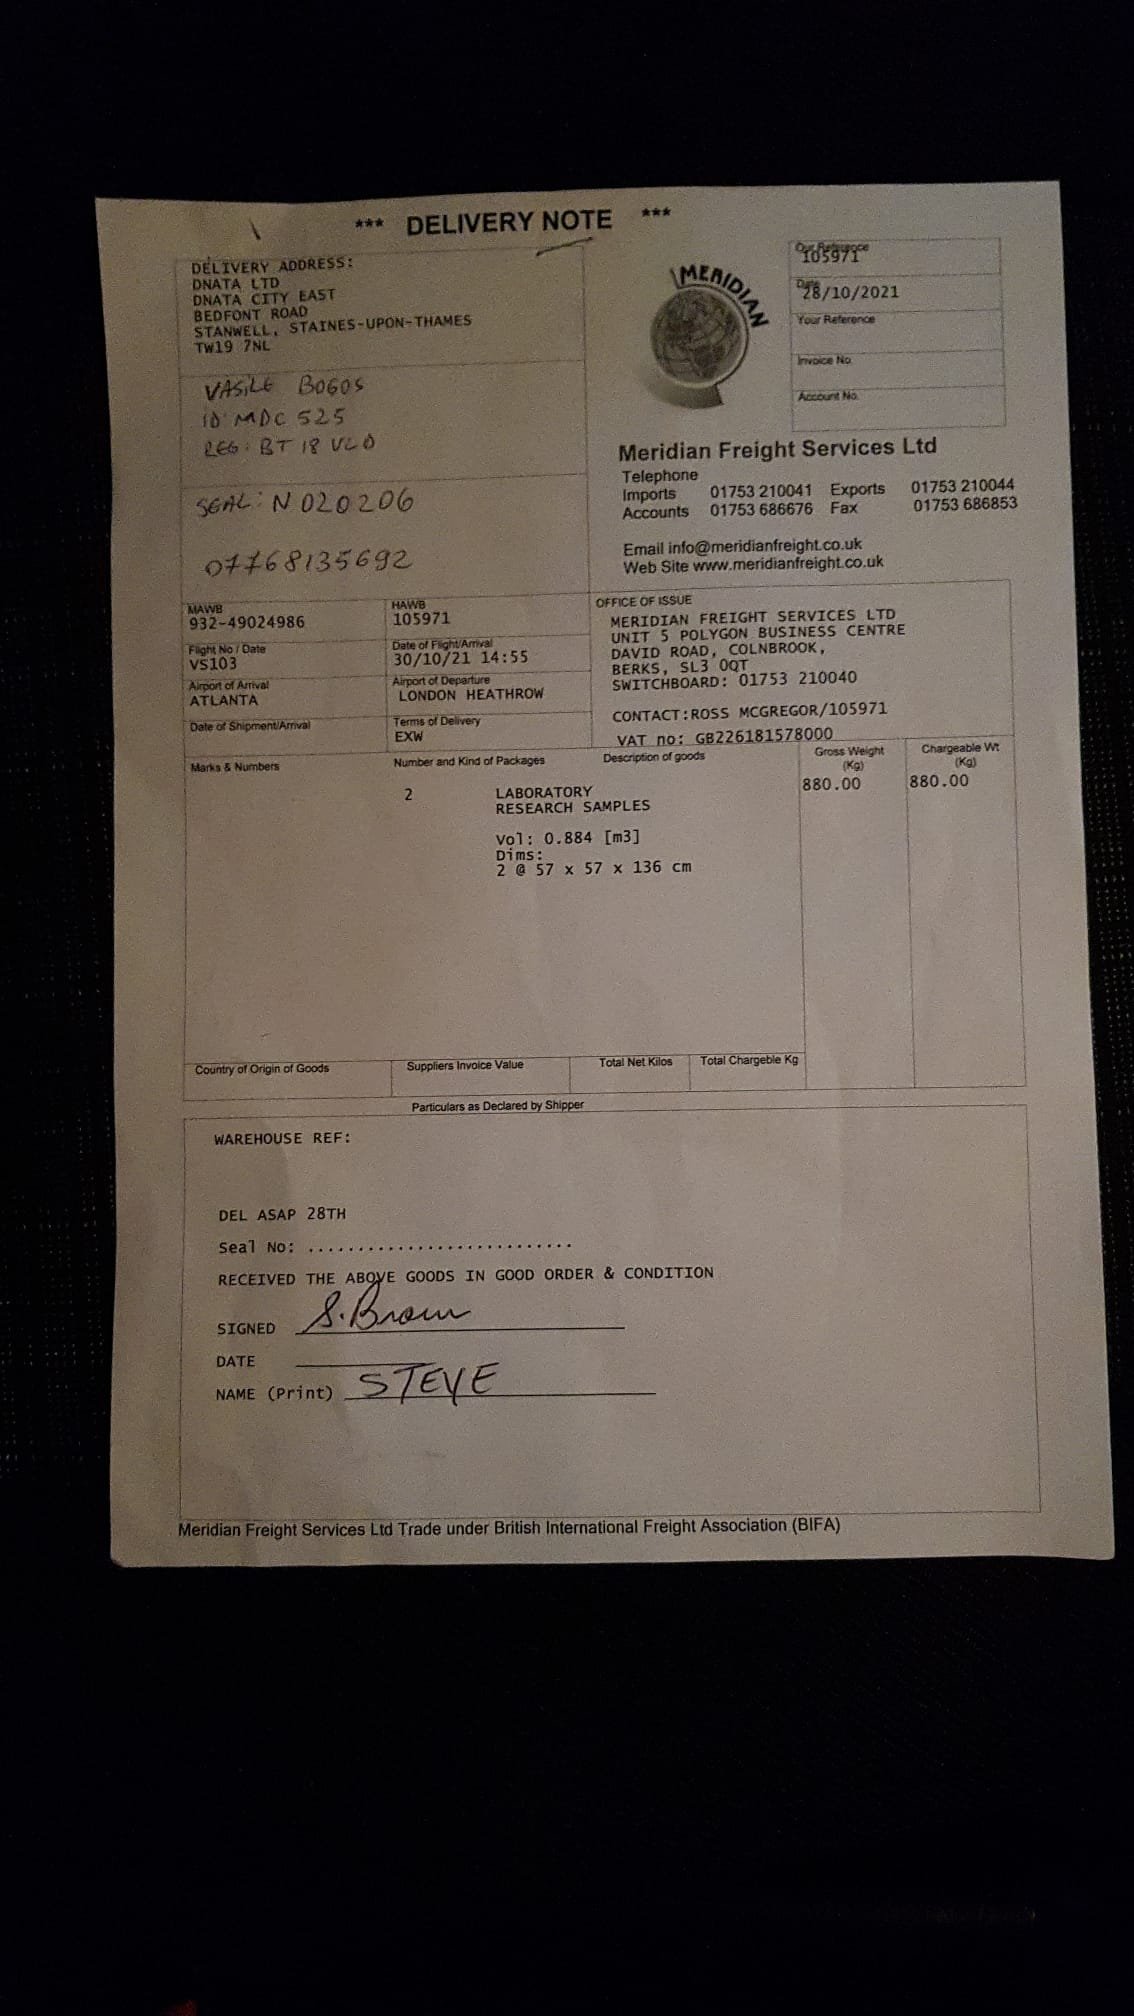 *** DELIVERY NOTE ***
DELIVERY ADDRESS:
DNATA LTD
DNATA CITY EAST
BEDFONT ROAD
STANWELL, STAINES-UPON-THAMES
TW19 7NL
VASILE BOGOS
ID MDC 525
REG: BT 18 VLO
SEAL: N 020206
07768135692
MERIDIAN
Our Reference
105971
Date
28/10/2021
Your Reference
Invoice No.
Account No.
Meridian Freight Services Ltd
Telephone
Imports 01753 210041 Exports 01753 210044
Accounts 01753 686676 Fax 01753 686853
Email info@meridianfreight.co.uk
Web Site www.meridianfreight.co.uk
MAWB
932-49024986
HAWB
105971
Flight No / Date
VS103
Date of Flight/Arrival
30/10/21 14:55
Airport of Arrival
ATLANTA
Airport of Departure
LONDON HEATHROW
Date of Shipment/Arrival
Terms of Delivery
EXW
OFFICE OF ISSUE
MERIDIAN FREIGHT SERVICES LTD
UNIT 5 POLYGON BUSINESS CENTRE
DAVID ROAD, COLNBROOK,
BERKS, SL3 0QT
SWITCHBOARD: 01753 210040
CONTACT:ROSS MCGREGOR/105971
VAT no: GB226181578000
Marks & Numbers
Number and Kind of Packages
Description of goods
Gross Weight
(Kg)
Chargeable Wt
(Kg)
2 LABORATORY 880.00 880.00
RESEARCH SAMPLES
Vol: 0.884 [m3]
Dims:
2 @ 57 x 57 x 136 cm
Country of Origin of Goods
Suppliers Invoice Value
Total Net Kilos
Total Chargeble Kg
Particulars as Declared by Shipper
WAREHOUSE REF:
DEL ASAP 28TH
Seal No: ...........................
RECEIVED THE ABOVE GOODS IN GOOD ORDER & CONDITION
SIGNED S. Brown
DATE
NAME (Print) STEVE
Meridian Freight Services Ltd Trade under British International Freight Association (BIFA)